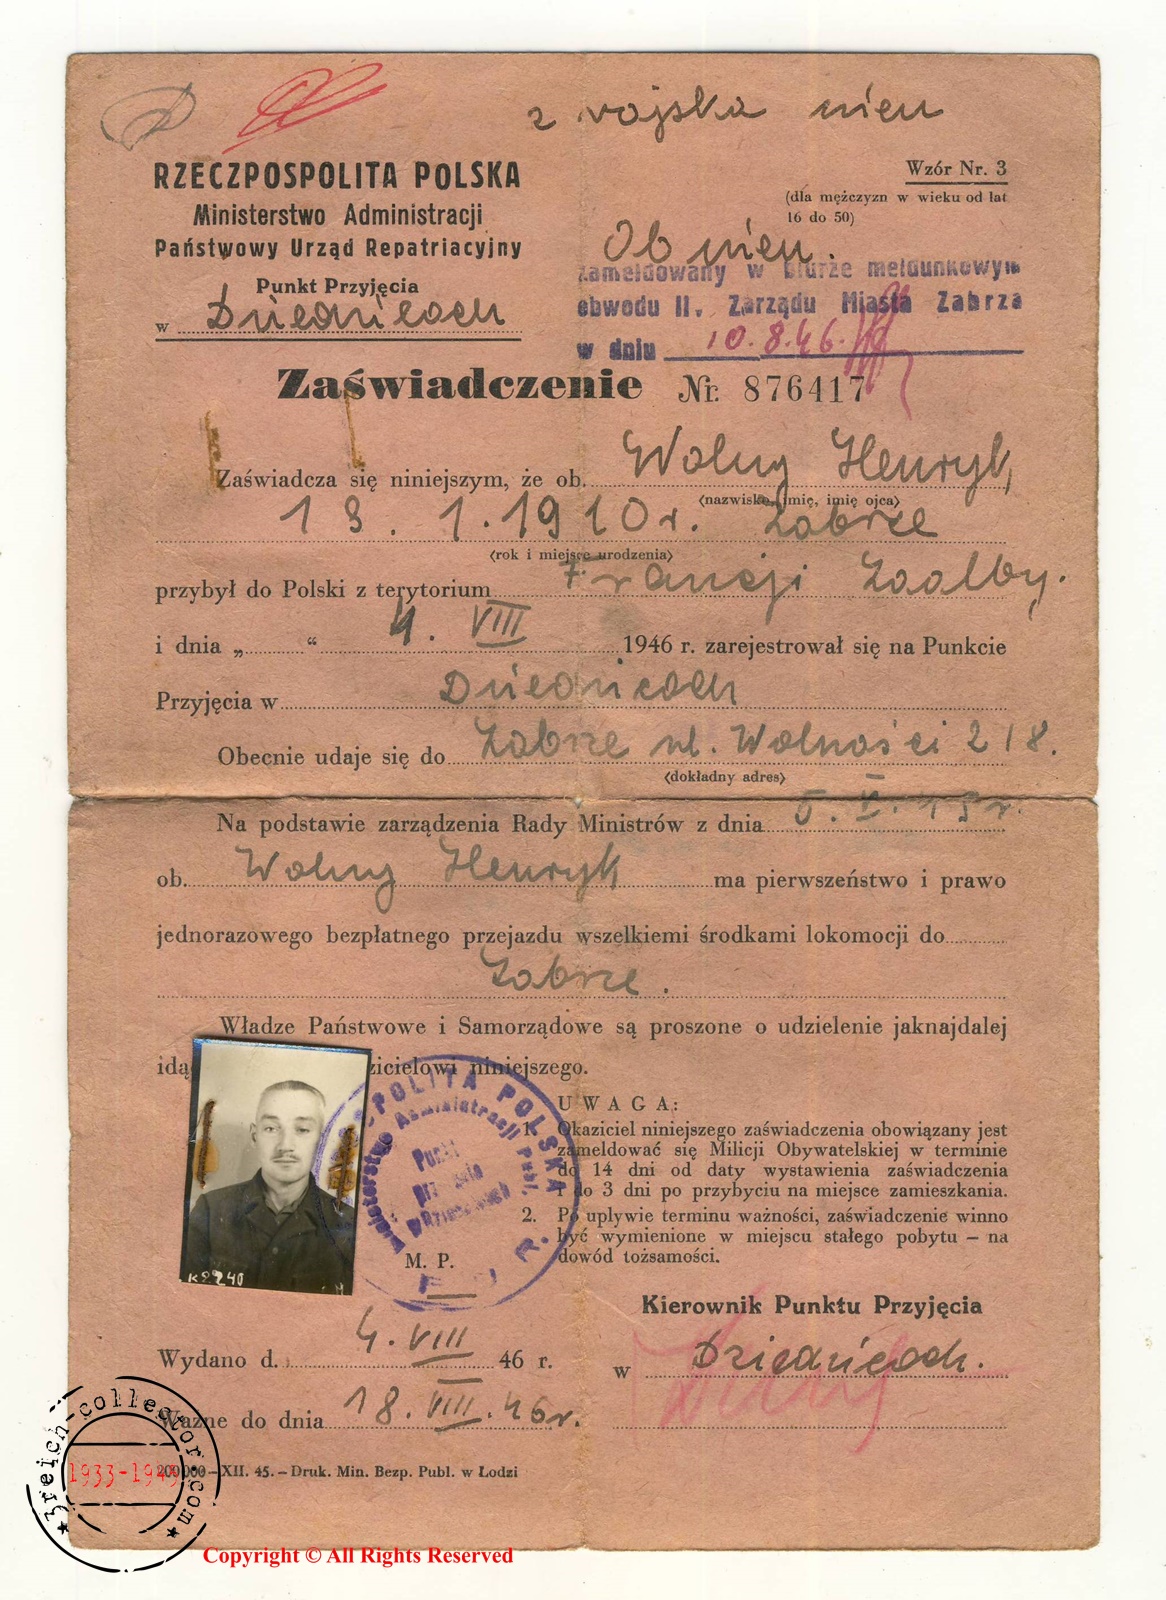 z vojska niem
RZECZPOSPOLITA POLSKA
Ministerstwo Administracji
Państwowy Urząd Repatriacyjny
Punkt Przyjęcia
w Dziedzicach
Wzór Nr. 3
(dla mężczyzn w wieku od lat
16 do 50)
Ob niem.
Zameldowany w biurze meldunkowym
obwodu II. Zarządu Miasta Zabrza
w dniu 10.8.46.
Zaświadczenie Nr. 876417
Zaświadcza się niniejszym, że ob. Wolny Henryk
(nazwisko, imię, imię ojca)
13. 1. 1910 r. Zabrze
(rok i miejsce urodzenia)
przybył do Polski z terytorium Francji
i dnia „ “ 4. VIII 1946 r. zarejestrował się na Punkcie
Przyjęcia w Dziedzicach
Obecnie udaje się do Zabrze ul. Wolności 218.
(dokładny adres)
Na podstawie zarządzenia Rady Ministrów z dnia
ob. Wolny Henryk ma pierwszeństwo i prawo
jednorazowego bezpłatnego przejazdu wszelkiemi środkami lokomocji do
Zabrze.
Władze Państwowe i Samorządowe są proszone o udzielenie jaknajdalej
idą zicielowi niniejszego.
POLITA POLSKA
Ministerstwo Administracji Publ.
Punkt
w Dziedzicach
P. U. R.
UWAGA:
1. Okaziciel niniejszego zaświadczenia obowiązany jest
zameldować się Milicji Obywatelskiej w terminie
do 14 dni od daty wystawienia zaświadczenia
i do 3 dni po przybyciu na miejsce zamieszkania.
2. Po uplywie terminu ważności, zaświadczenie winno
być wymienione w miejscu stałego pobytu – na
dowód tożsamości.
M. P.
K2240
Kierownik Punktu Przyjęcia
w Dziedzicach.
Wydano d. 4. VIII 46 r.
Ważne do dnia 18. VIII. 46 r.
200.000–XII. 45. – Druk. Min. Bezp. Publ. w Łodzi
3reich-collector.com
1933-1945
Copyright © All Rights Reserved